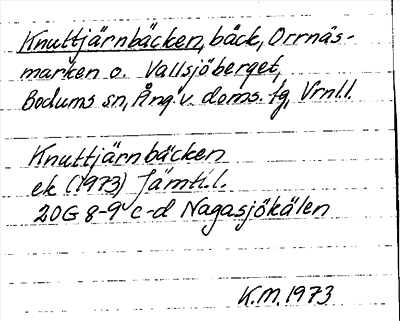 Knuttjärnbäcken, bäck, Orrnäs-
marken o. Vallsjöberget,
Bodums sn, Ång. v. doms. tg, Vrnl.l.
Knuttjärnbäcken
ek (1973) Jämtl.l.
20G 8-9 c-d Nagasjökälen
K.M. 1973